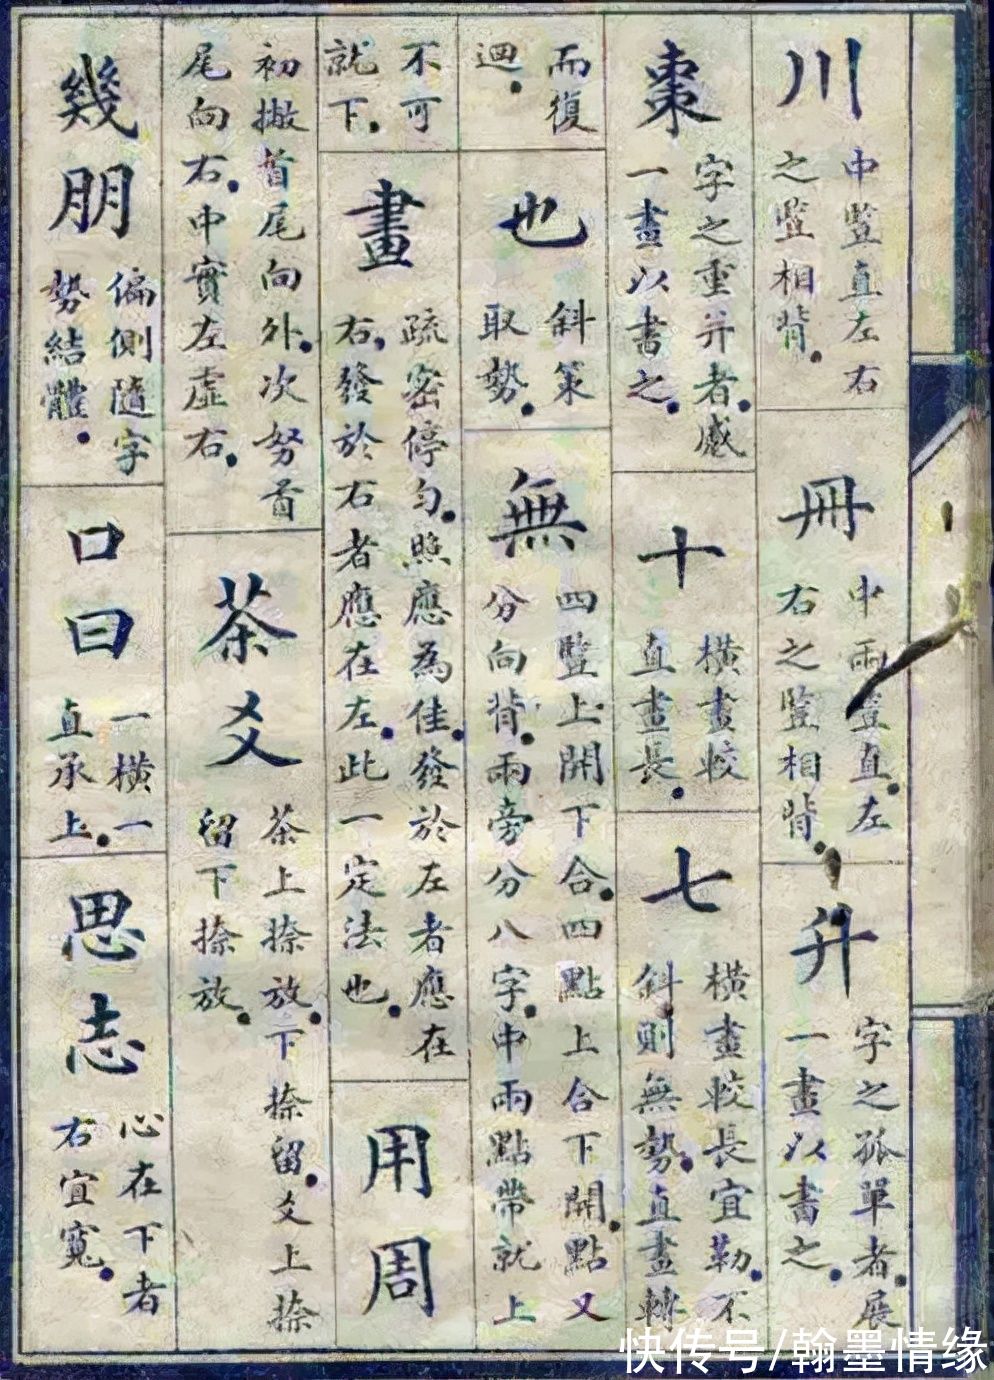 川
中豎直左右
之豎相背。
冊
中兩豎直。左
右之豎相背。
升
字之孤單者。展
一畫以書之。
棗
字之重并者。感
一畫以書之。
十
橫畫較
直畫長。
七
橫畫較長宜勒。不
斜則無勢。直畫轉
而復
迴。
也
斜策
取勢。
無
四豎上開下合。四點上合下開。點又
分向背。兩旁分八字。中兩點帶就上
不可
就下。
畫
疏密停勻。照應為佳。發於左者應在
右。發於右者應在左。此一定法也。
用周
初撇首尾向外。次努首
尾向右。中實左虛右。
茶爻
茶上捺放。下捺留。爻上捺
留下捺放。
幾朋
偏側隨字
勢結體。
口曰
一橫一
直承上。
思志
心在下者
右宜寬。
快传号/翰墨情缘